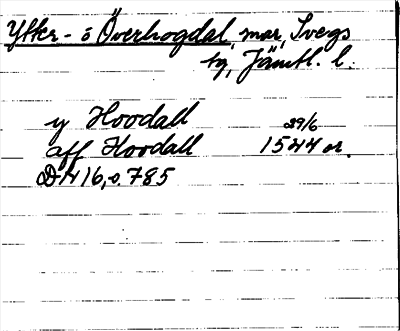 Ytter- o Överhogdal, mar, Svegs
tg, Jämtl. l.
y Hoodall 29/6
aff Hoodall 1544 or.
DN 16, s. 785